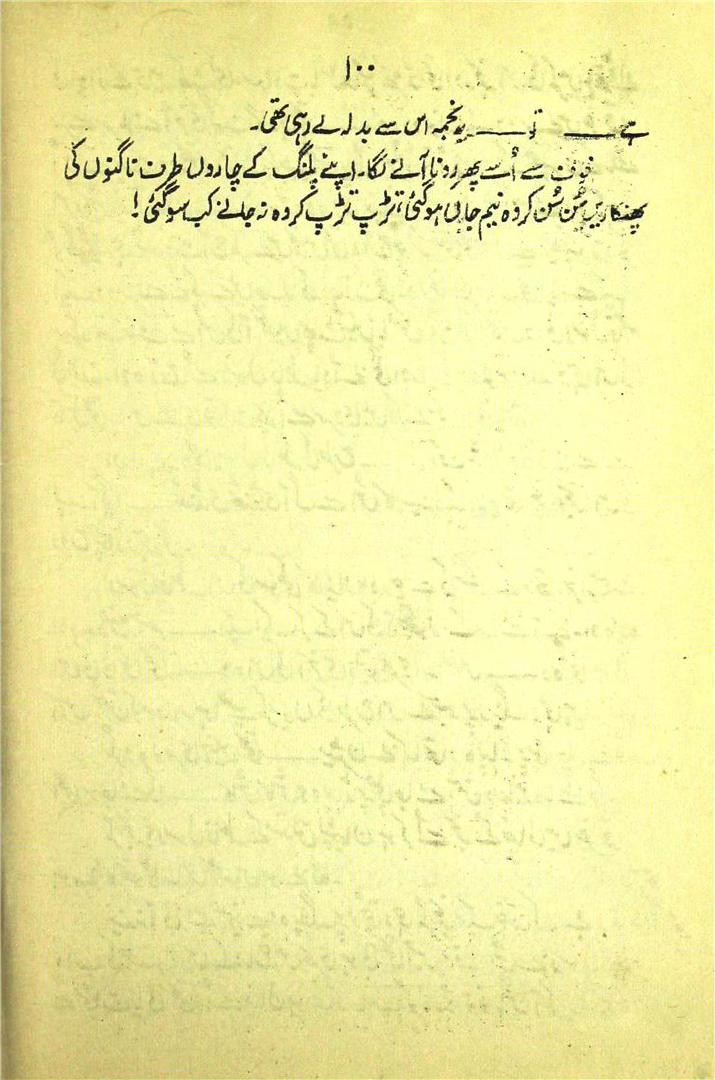 ۱۰۰
ہے ـــــ تو ـــــ یونجمہ اس سے بدلہ لے رہی تھی۔
خوف سے اُسے پھر رونا آنے لگا۔ اپنے پلنگ کے چاروں طرف ناگنوں کی
پھنکاریں سُن سُن کر وہ نیم جاں ہوگئی، تڑپ تڑپ کر وہ نہ جانے کب سوگئی!